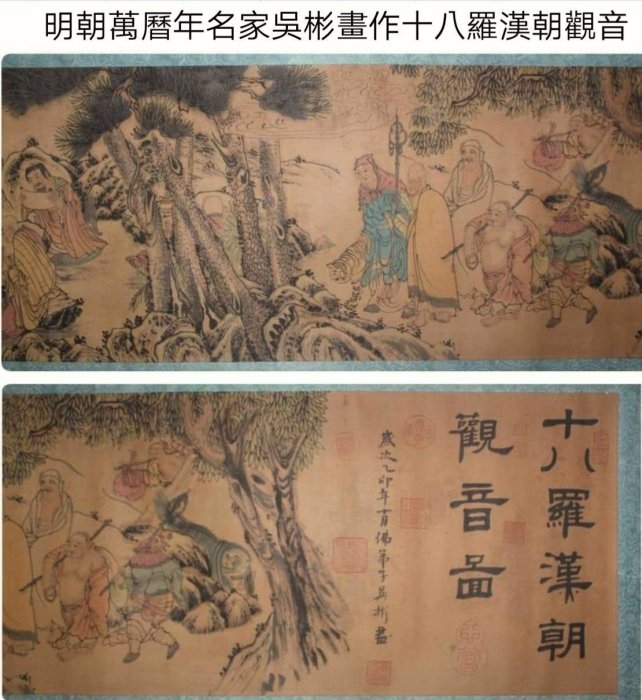 明朝萬曆年名家吳彬畫作十八羅漢朝觀音
十八羅漢朝
觀音啚
歲次乙卯年十月佛弟子吳彬畫